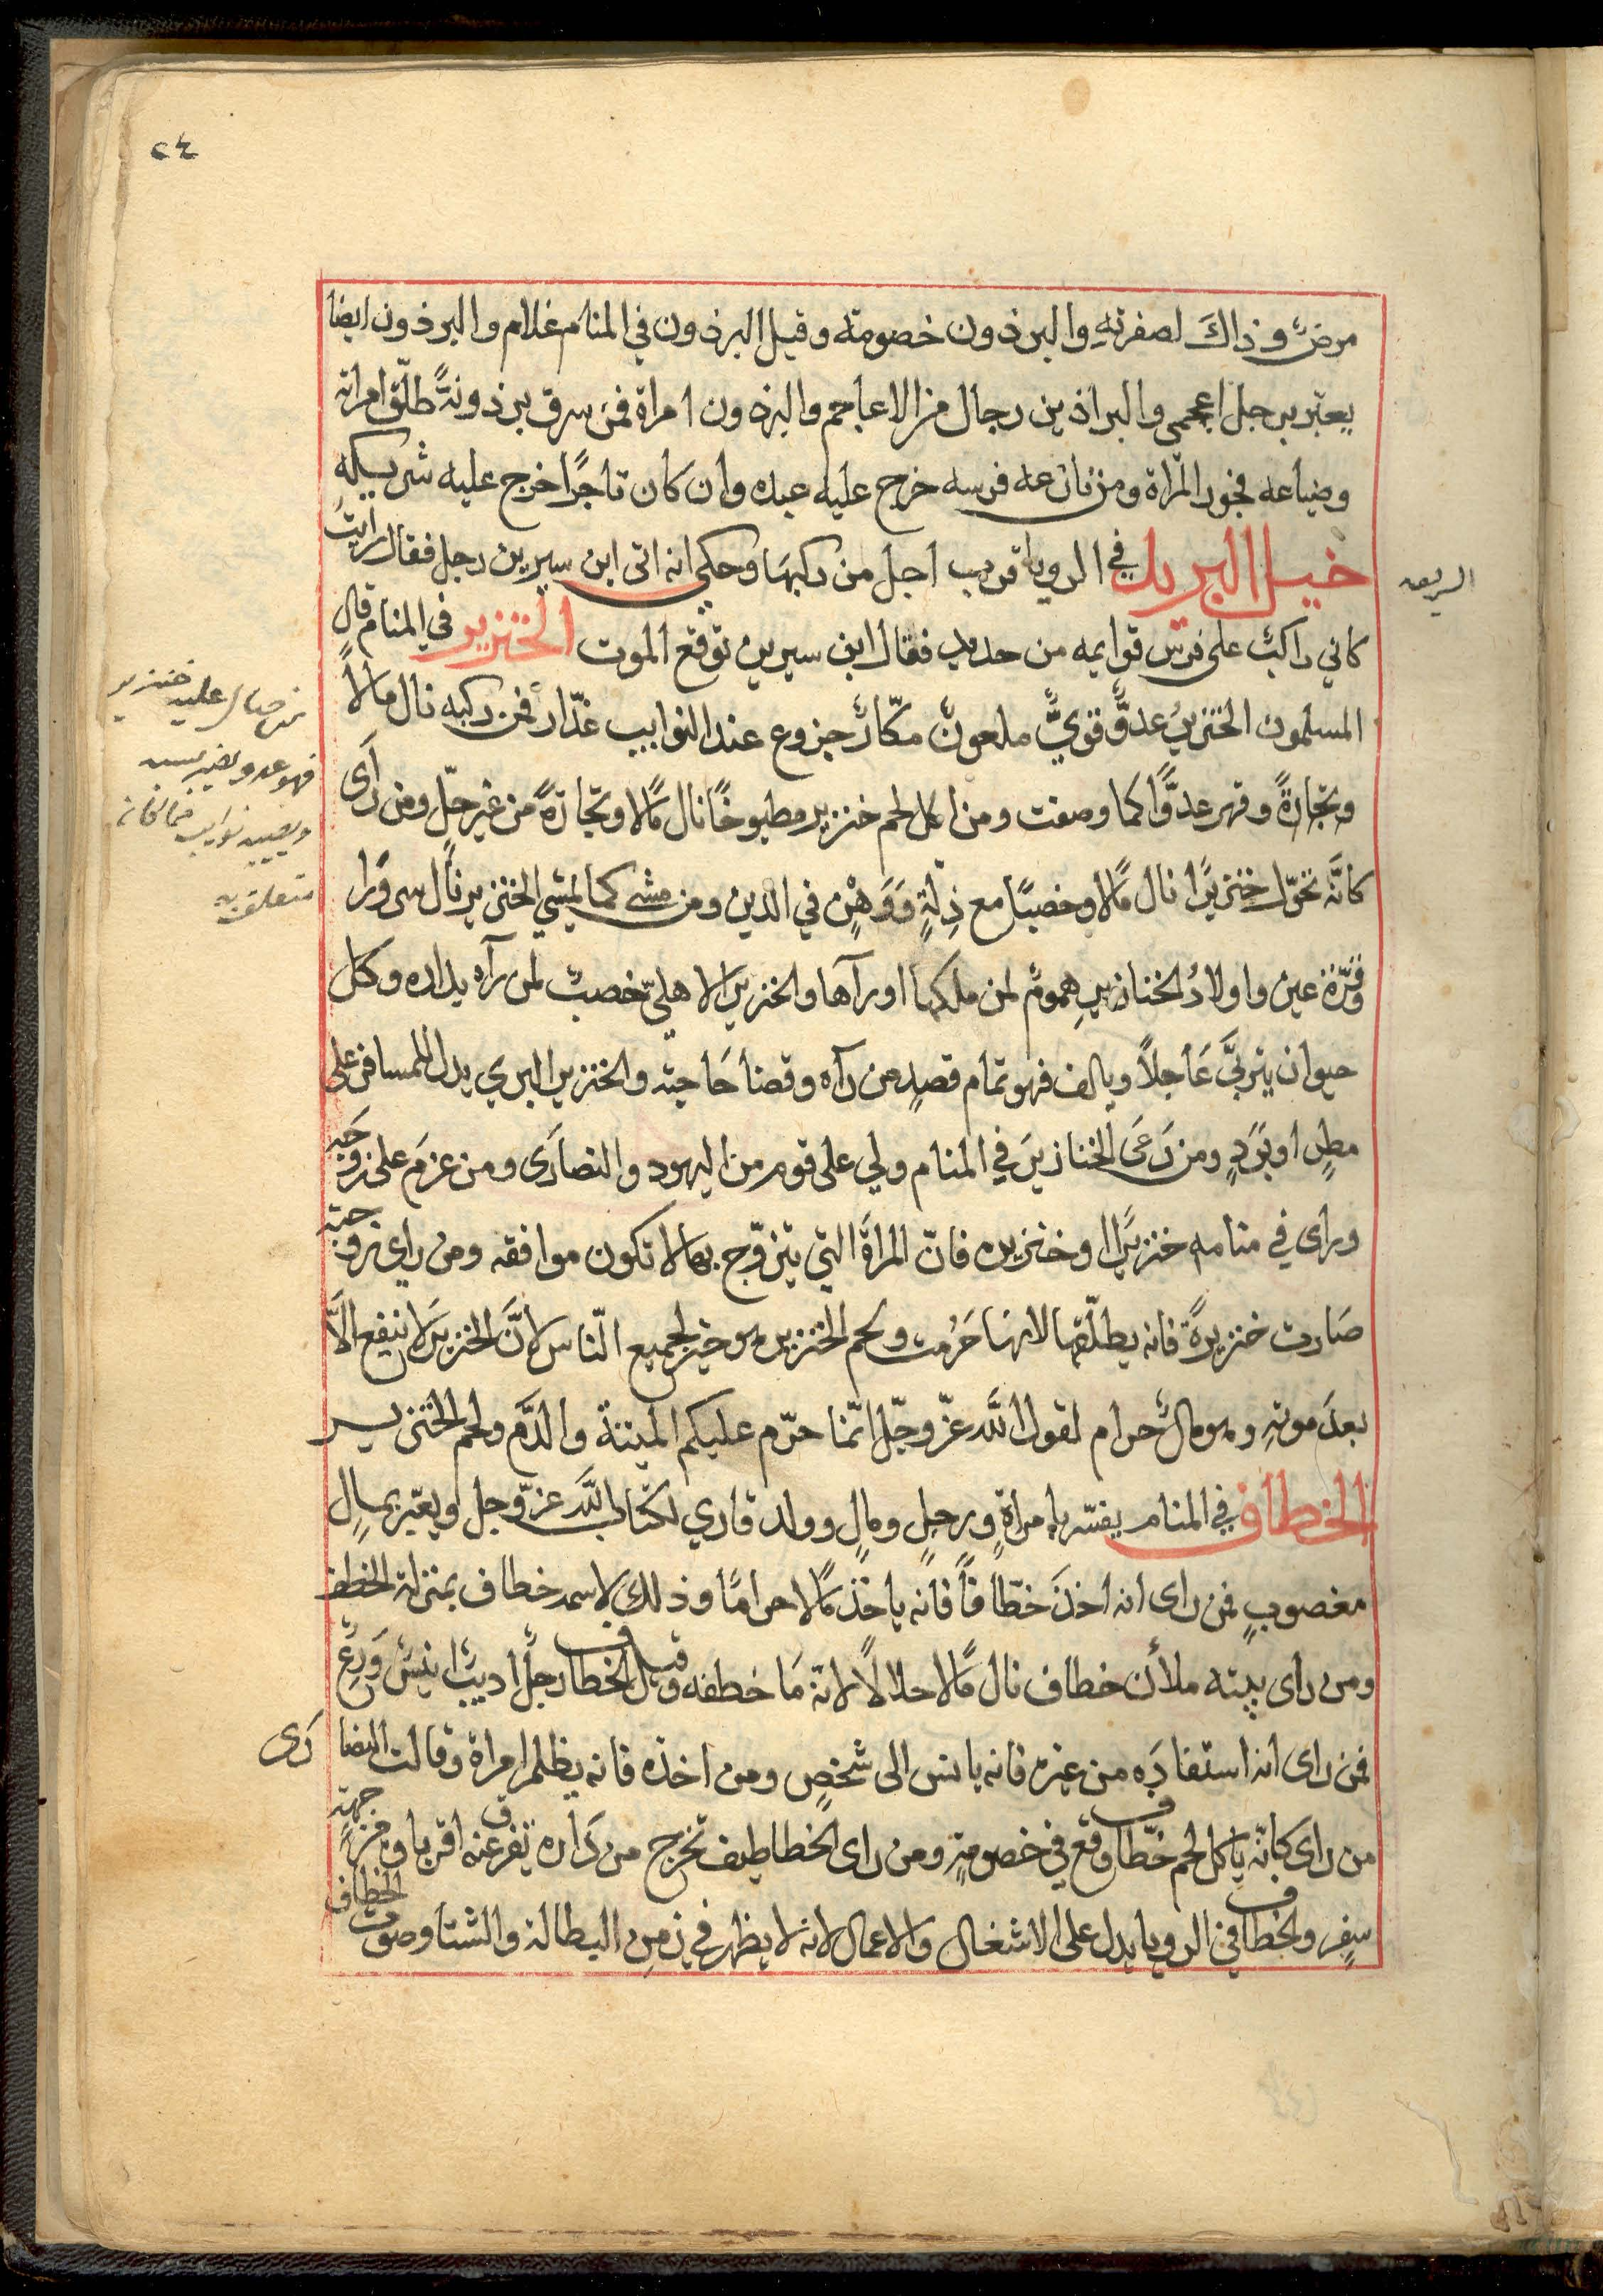 ٢٤
مرضٌ وذاكَ لصفرتهِ والبرذون خصومة وقيل البرذون في المنام غلام والبرذون ايضا
يعتبر برجل اعجمي والبراذين رجال من الاعاجم والبرذون امراة فمن سرق برذونةً طلّق امراته
وضياعه فجور المراة ومن نازعه فرسه خرج عليه عبده وان كان تاجرًا خرج عليه شريكهِ
خيل البريد في الرويا قريب اجل من ركبها وحكي انه اتى ابن سيرين رجل فقال رايت
كاني راكبٌ على فرس قوايمه من حديد فقال ابن سيرين توقع الموت الخنزير في المنام قال
المسلمون الخنزيرُ عدوٌّ قويٌّ ملعونٌ مكّارٌ جزوع عند النوايب غدّار فمن ركبه نال مالاً
وتجارةً وقهر عدوًّا كما وصفت ومن اكل لحم خنزير مطبوخًا نال مالًا وتجارةً من غير حلّ ومن رَاى
كانَّه تحوّل خنزيرًا نال مالًا وخصبًا مع ذِلةٍ وَوَهْنٍ في الدين ومن مشى كما يمشي الخنزير نال سرورًا
وقرّة عين واولادُ الخنازيرِ همومٌ لمن ملكها اورآها والخنزير الاهليّ خصبٌ لمن رآه بداره وكل
حيوان يتربَّى عَاجلاً ويالف فهو تمام قصدٍ من رآه وقضا حَاجته والخنزير البري يدل للمسافر على
مطرٍ او بَردٍ ومن رَعَى الخنازيرَ في المنام ولي على قوم من اليهود والنصارَى ومن عزمَ على زوجَه
وراى في منامه خنزيرًا او خنزيره فانّ المراةَ التي يتزوّج بها لا تكون موافقه ومن راى زوجته
صَارت خنزيرةً فانه يطلّقها لانهَا حَرُمت ولحم الخنزير هو خير لجميع النّاس لانَّ الخنزيرَ لا ينفع الاَّ
بعدَ موتهِ وهو مالٌ حرام لقول اللَّه عزّوجلّ انّما حرّم عليكم الميتة والدَّم ولحم الخنزير
الخطاف في المنام يفسّر بامراةٍ ورجلٍ ومالٍ وولد قاري لكتاب اللَّه عزّوجل ويعبّر بمالٍ
مغصوبٍ فمن راى انه اخذَ خطّافاً فانّه ياخذ مالًا حرامًا وذلك لاسمه خطاف بمنزلة الخطف
ومن راى بيته ملأن خطاف نال مالًا حلالاً لانة مَا خطفه وقيل الخطاف رجلٌ اديبٌ انيسٌ وَرِعٌ
فمن راى انه استفادَه من غيره فانه يانس الى شخصٍ ومن اخذه فانه يظلم امراة وقالت النصارَى
من راى كانّه ياكل لحم خطّاف وقع في خصومةٍ ومن راى الخطاطيف تخرج من دَاره تفرق عنه اقرباوه من جهة
سفرٍ والخطاف في الرويا يدل على الاشغال والاعمال لانه لا يظهر في زمن البطالة والشتا وصوت الخطاف
من صال عليه خنزير
فهو عدو
متعلقة به